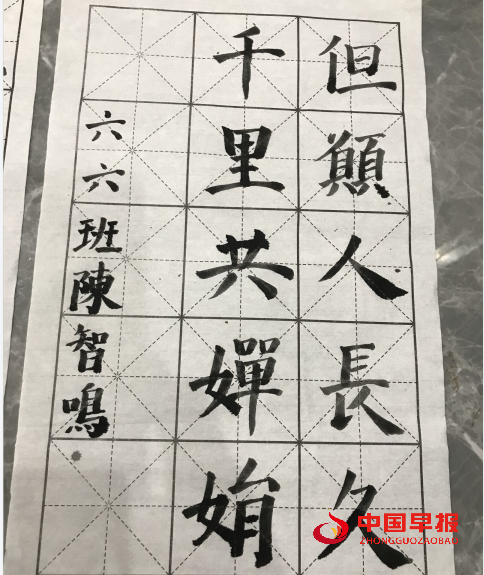 但願人長久
千里共嬋娟
六六班陳智鳴
中国早报
ZHONGGUOZAOBAO